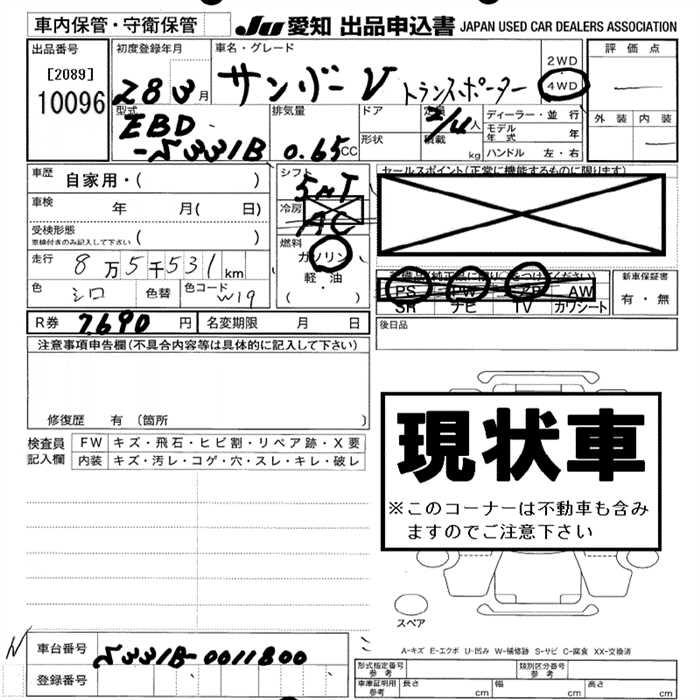 車内保管・守衛保管
JU 愛知 出品申込書 JAPAN USED CAR DEALERS ASSOCIATION
出品番号
[2089]
10096
初度登録年月
28 3月
車名・グレード
サンバーV トランスポーター
2WD
4WD
評価点
外装 内装
型式
EBD
-S331B
排気量
0.65CC
ドア
形状
定員
2/4人
積載
kg
ディーラー・並行
モデル年式 年
ハンドル 左・右
車歴
自家用・( )
車検 年 月( 日)
受検形態
車検付きのみ記入して下さい ( )
走行 8万5千531km
色 シロ 色替 色コード W19
シフト
5MT
冷房
AC
燃料
ガソリン
軽・油
( ・ )
セールスポイント(正常に機能するものに限ります)
PS PW AW
SR ナビ TV カワシート
新車保証書
有・無
R券 7,690円 名変期限 月 日
後日品
注意事項申告欄(不具合内容等は具体的に記入して下さい)
修復歴 有 (箇所 )
検査員
記入欄
FW キズ・飛石・ヒビ割・リペア跡・X要
内装 キズ・汚レ・コゲ・穴・スレ・キレ・破レ
現状車
※このコーナーは不動車も含み
ますのでご注意下さい
スペア
A-キズ E-エクボ U-凹み W-補修跡 S-サビ C-腐食 XX-交換済
車台番号 S331B-0011800
登録番号
形式指定番号
参考
類別区分番号
参考
車庫証明用
参考
長さ cm 幅 cm 高さ cm